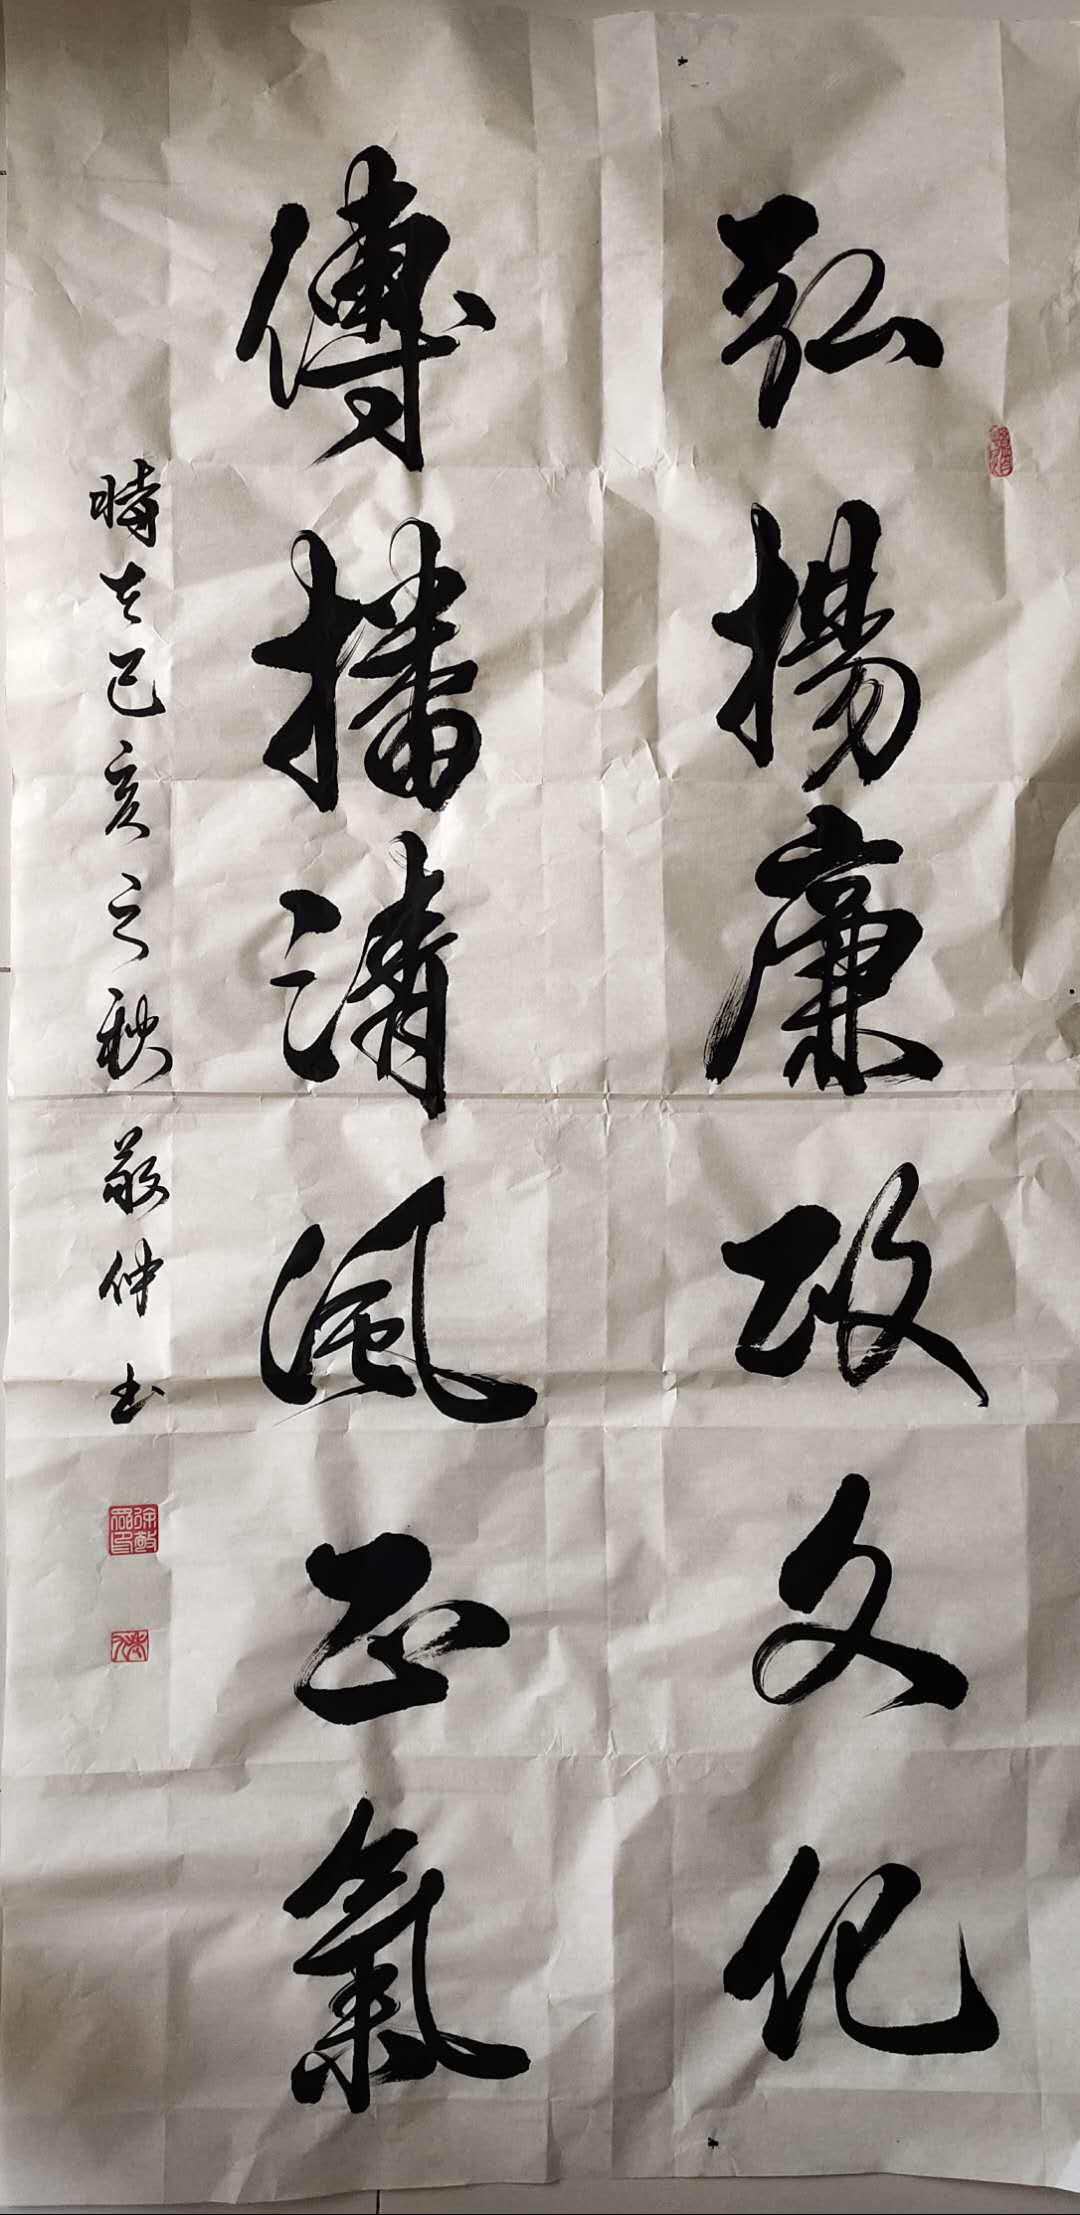 弘揚廉政文化
傳播清風正氣
時在己亥之秋敬仲书